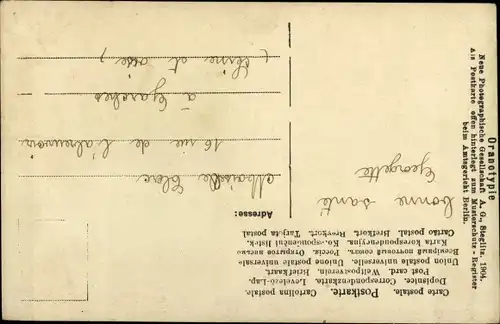 Carte postale. Postkarte. Cartolina postale.
Dopisnice. Correspondenzkarte. Levelező-Lap.
Post card. Weltpostverein. Briefkort.
Union postale universelle. Unione postale universale
Karta korespondencyjna. Ko-spondenční lístek.
Cartão postal. Brefkort. Brevkort. Tarjeta postal.
Adresse:
bonne santé
Georgette
16 rue de
à Garches
(Seine et Oise)
Oranotypie
Neue Photographische Gesellschaft A. G., Steglitz. 1904.
Als Postkarte offen hinterlegt zum Musterschutz-Register
beim Amtsgericht Berlin.